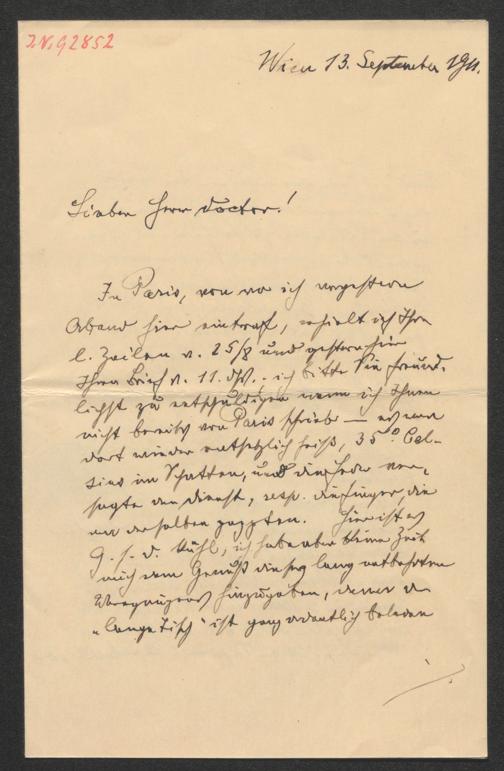 I.N. 92852
Wien 13. September 1911.
Lieber Herr Doctor!
In Paris, von wo ich vorgestern
Abend hier eintraf, erhielt ich Ihre
l. Zeilen v. 25/8 und gestern hier
Ihren Brief v. 11. ds.; ich bitte Sie freund-
lichst zu entschuldigen wenn ich Ihnen
nicht bereits von Paris schrieb — es war
dort wieder entsetzlich heiß, 35° Cel-
sius im Schatten, und die Feder ver-
sagte den Dienst, resp. die Finger, die
an derselben Hier ist es
G. s. d. kühl, ich habe aber keine Zeit
mich dem Genuß dieses lang entbehrten
Vergnügens hinzugeben, denn der
"lange Tisch" ist ganz ordentlich beladen